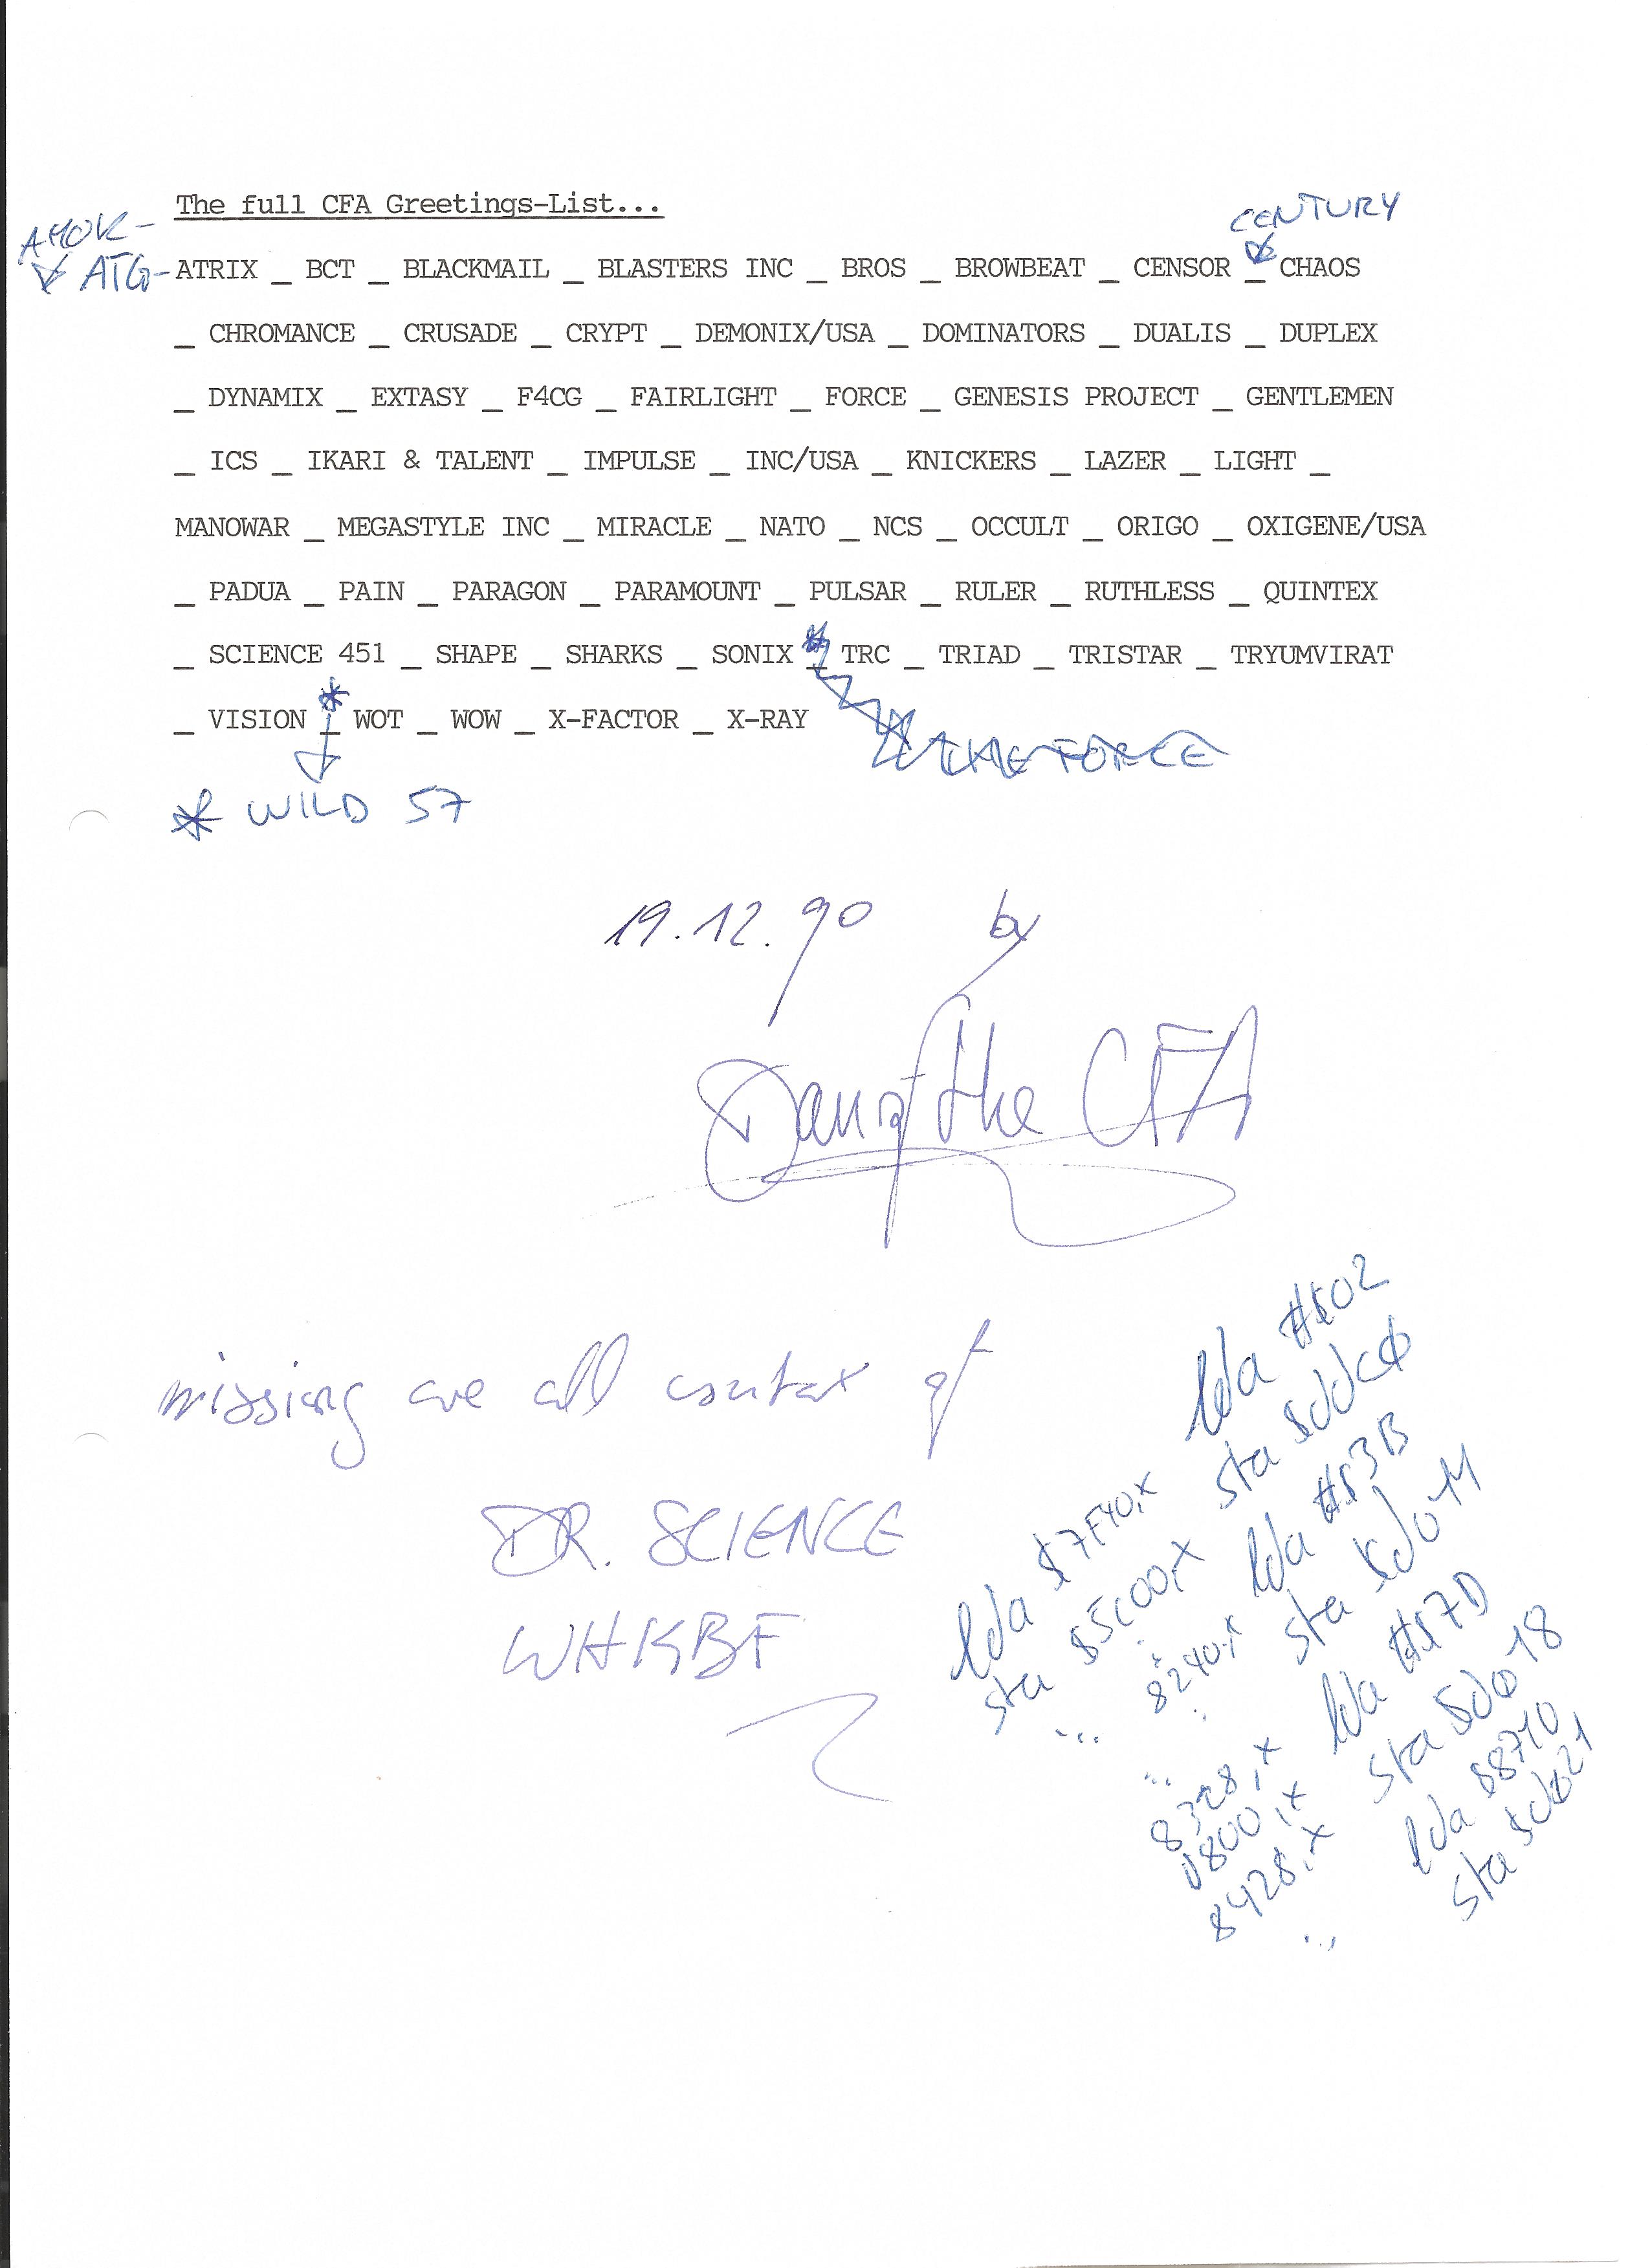 The full CFA Greetings-List...
CENTURY
AMOK-
ATG-ATRIX _ BCT _ BLACKMAIL _ BLASTERS INC _ BROS _ BROWBEAT _ CENSOR _ CHAOS
_ CHROMANCE _ CRUSADE _ CRYPT _ DEMONIX/USA _ DOMINATORS _ DUALIS _ DUPLEX
_ DYNAMIX _ EXTASY _ F4CG _ FAIRLIGHT _ FORCE _ GENESIS PROJECT _ GENTLEMEN
_ ICS _ IKARI & TALENT _ IMPULSE _ INC/USA _ KNICKERS _ LAZER _ LIGHT _
MANOWAR _ MEGASTYLE INC _ MIRACLE _ NATO _ NCS _ OCCULT _ ORIGO _ OXIGENE/USA
_ PADUA _ PAIN _ PARAGON _ PARAMOUNT _ PULSAR _ RULER _ RUTHLESS _ QUINTEX
_ SCIENCE 451 _ SHAPE _ SHARKS _ SONIX _ TRC _ TRIAD _ TRISTAR _ TRYUMVIRAT
_ VISION _ WOT _ WOW _ X-FACTOR _ X-RAY
THE FORCE
* WILD 57
19.12.90 by
the CFA
missing are all contax of
DR. SCIENCE
WHKBF
lda $7F40,x
sta $5C00,x
...
8240,x
...
8328,x
d800,x
8428,x
...
lda #$02
sta $dd00
lda #$3B
sta $d011
lda #$7D
sta $d018
lda $8710
sta $d021